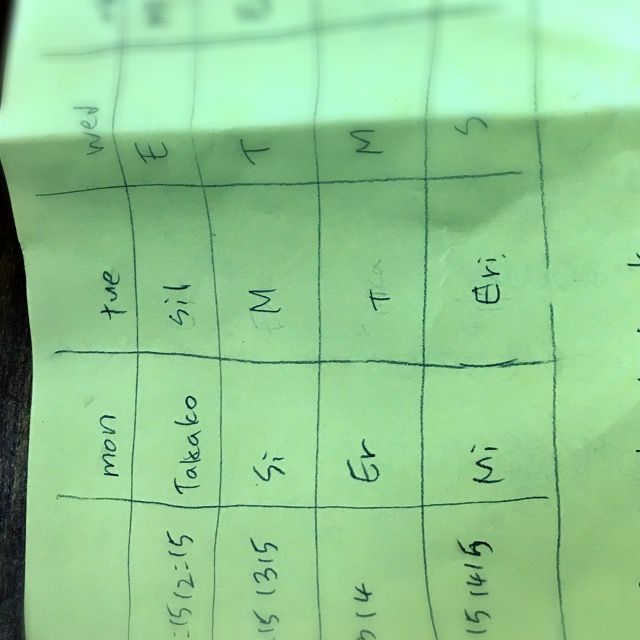 mon tue wed
=15 12=15 Takako Sil E
15 1315 Si M T
14 Er T M
15 1415 Mi Eri S